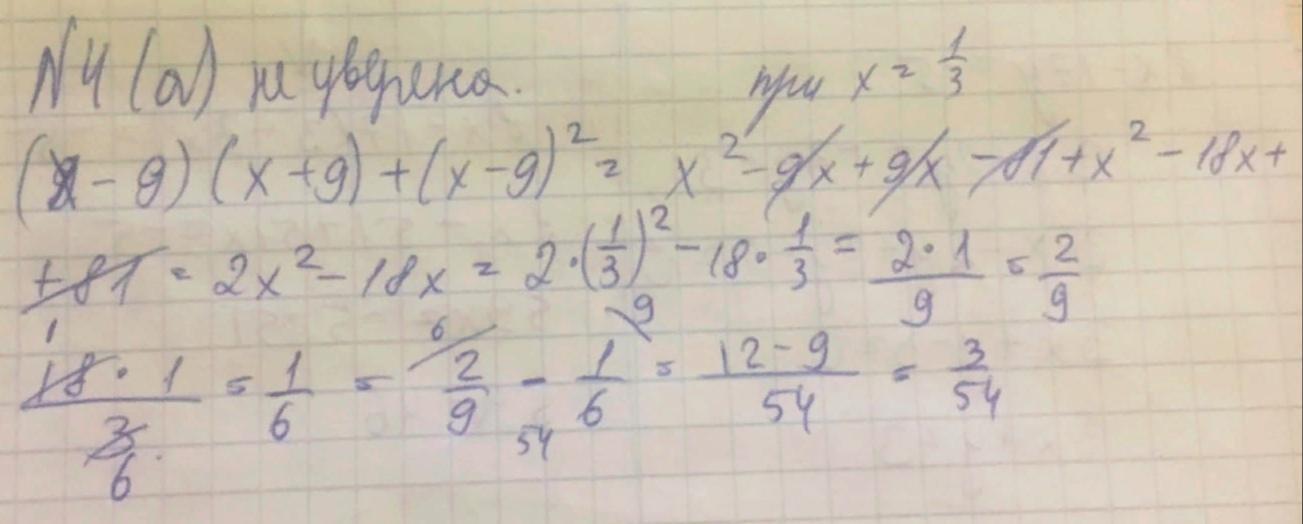 N4 (а) не уверена. при x = 1/3
(x - 9)(x + 9) + (x - 9)² = x² - 9x + 9x - 81 + x² - 18x +
+ 81 = 2x² - 18x = 2 · (1/3)² - 18 · 1/3 = 2 · 1/9 = 2/9
18 · 1/3 6 1 = 1/6 = 2/9 6 - 1/6 9 = 12 - 9/54 = 3/54
54